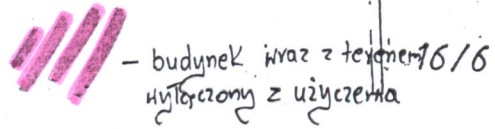 – budynek wraz z terenem 16/6
wyłączony z użyczenia